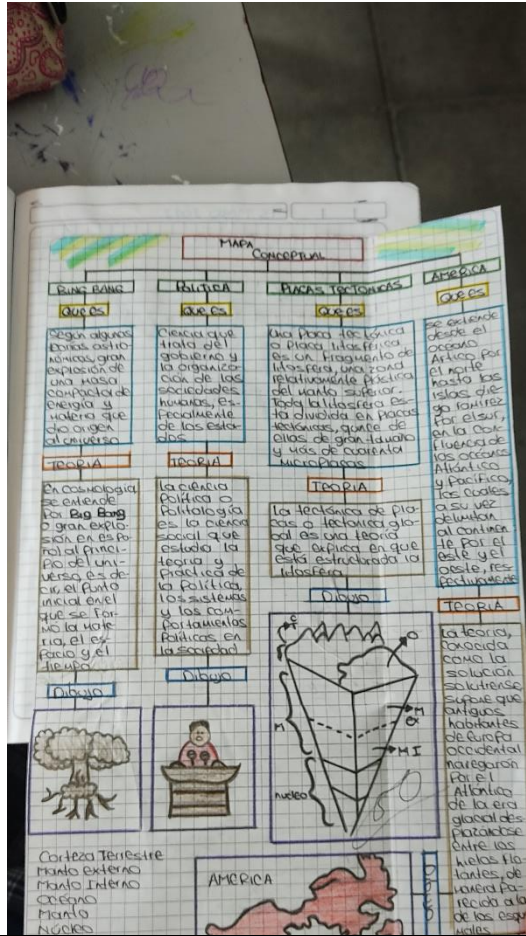 MAPA
CONCEPTUAL
BING BANG
Que es
Según algunas
teorías astro-
nómicas, gran
explosión de
una masa
compacta de
energía y
materia que
dio origen
al universo
TEORIA
En cosmología
se entende
Por Big Bang
o gran explo-
sión en espa-
ñol al princi-
Pio del uni-
verso, es de-
cir, el Punto
inicial en el
que se for-
mó la mate-
ria, el es-
pacio y el
tiempo
Dibujo
POLITICA
Que es
Ciencia que
trata del
gobierno y
la organiza-
ción de las
sociedades
humanas, es-
pecialmente
de los esta-
dos
TEORIA
La ciencia
Política o
Politología
es la ciencia
social que
estudia la
teoria y
Práctica de
la Política,
los sistemas
y los com-
Portamientos
Políticos en
la sociedad
Dibujo
PLACAS TECTONICAS
Que es
una Placa tectónica
o Placa litosférica
es un fragmento de
litosfera, una zona
relativamente Plástica
del manto superior.
Toda la litosfera es-
ta dividida en Placas
tectónicas,
ellas de gran tamaño
y más de cuarenta
microplacas
TEORIA
La tectónica de pla-
cas o tectónica glo-
bal es una teoría
que explica en que
está estructurada la
litosfera
Dibujo
C
T
O
M
M
E
M I
nucleo
AMERICA
Que es
se extiende
desde el
océano
Artico por
el norte
hasta las
islas die-
go ramirez
Por el sur,
en la con-
fluencia de
los océanos
Atlántico
y Pacífico,
los cuales
a su vez
delimitan
al continen-
te por el
este y el
oeste, res-
Pectivamente
TEORIA
La teoría,
conocida
como la
solución
solutrense
supone que
antiguos
habitantes
de Europa
occidental
navegaron
Por el
Atlántico
de la era
glacial des-
plazándose
entre los
hielos flo-
tantes, de
manera Pa-
recida a la
de los esqui-
males
Corteza Terrestre
Manto externo
Manto Interno
Océano
Manto
Núcleo
AMERICA